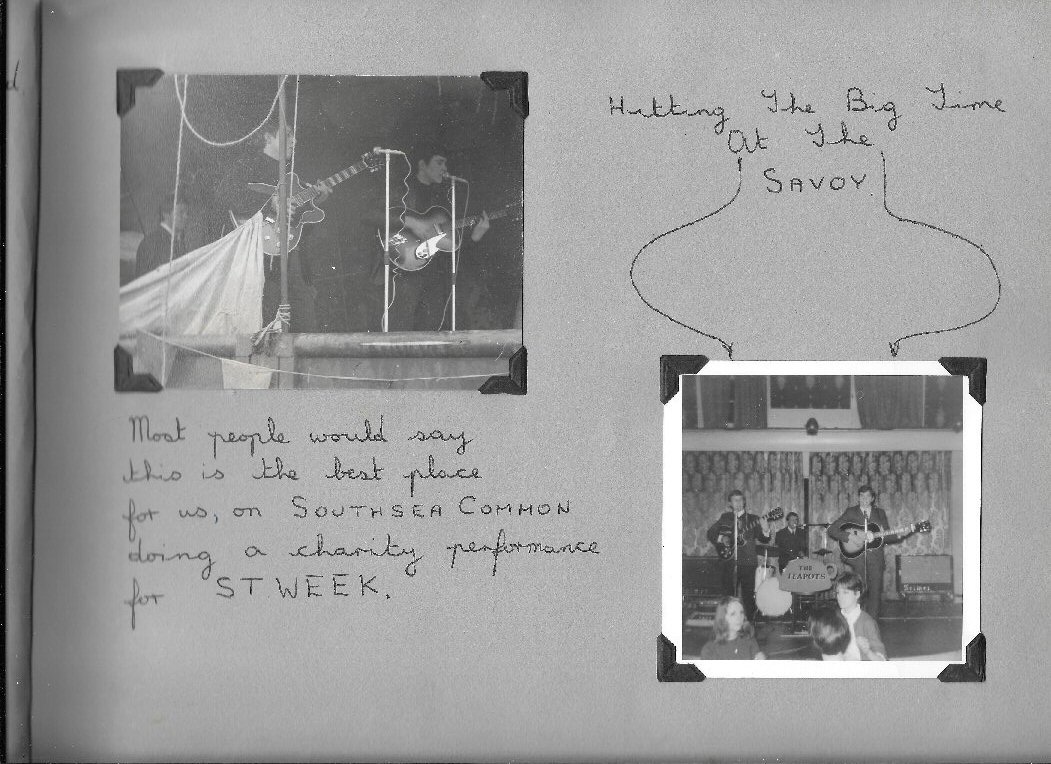 Hitting The Big Time
At The
SAVOY.
Most people would say
this is the best place
for us, on SOUTHSEA COMMON
doing a charity performance
for ST WEEK.
THE
TEAPOTS
Selmer